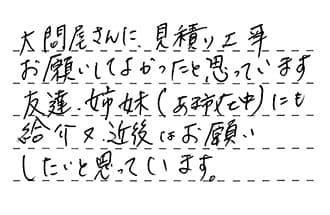 大問尾さんに、見積り工事
お願いしてよかったと思っています
友達、姉妹(ある市在中)にも
給介又、近後はお願い
したいと思っています。